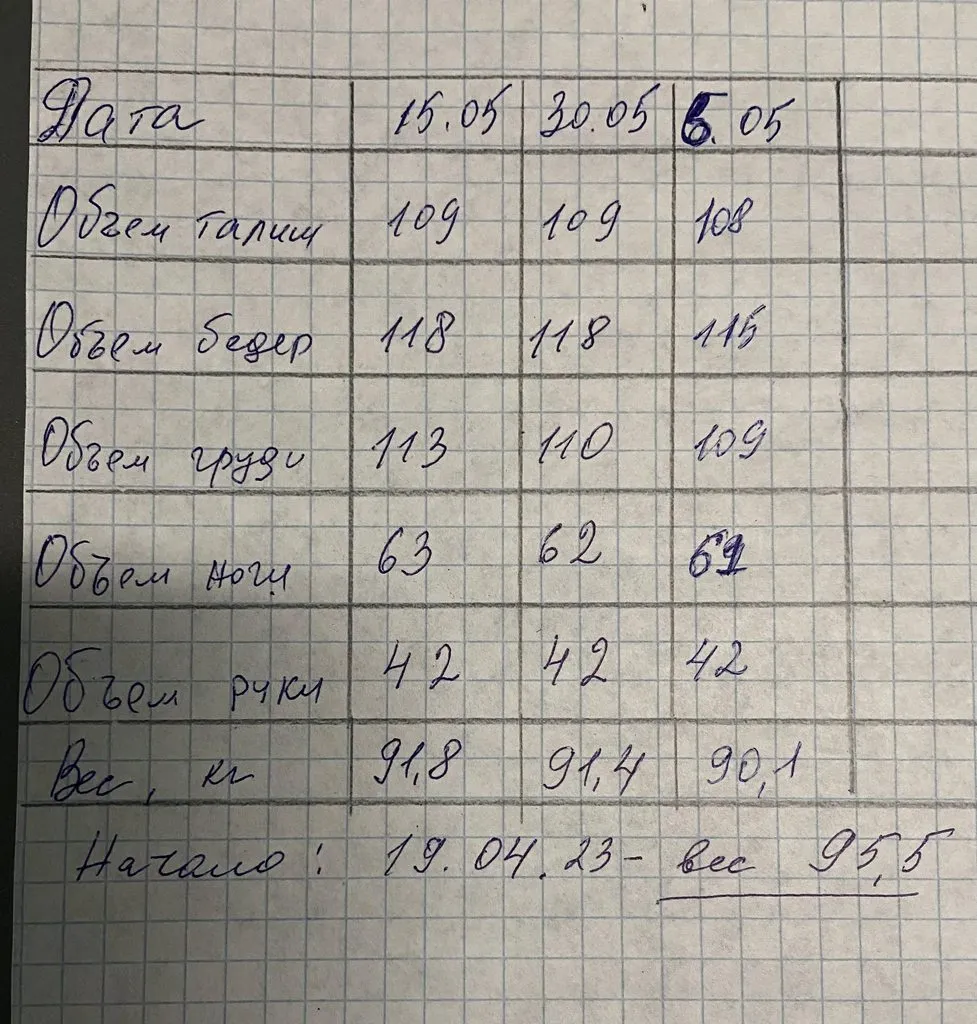 Дата 15.05 30.05 6.05
Объем талии 109 109 108
Объем бедер 118 118 115
Объем груди 113 110 109
Объем ноги 63 62 61
Объем руки 42 42 42
Вес, кг 91,8 91,4 90,1
Начало: 19.04.23 - вес 95,5